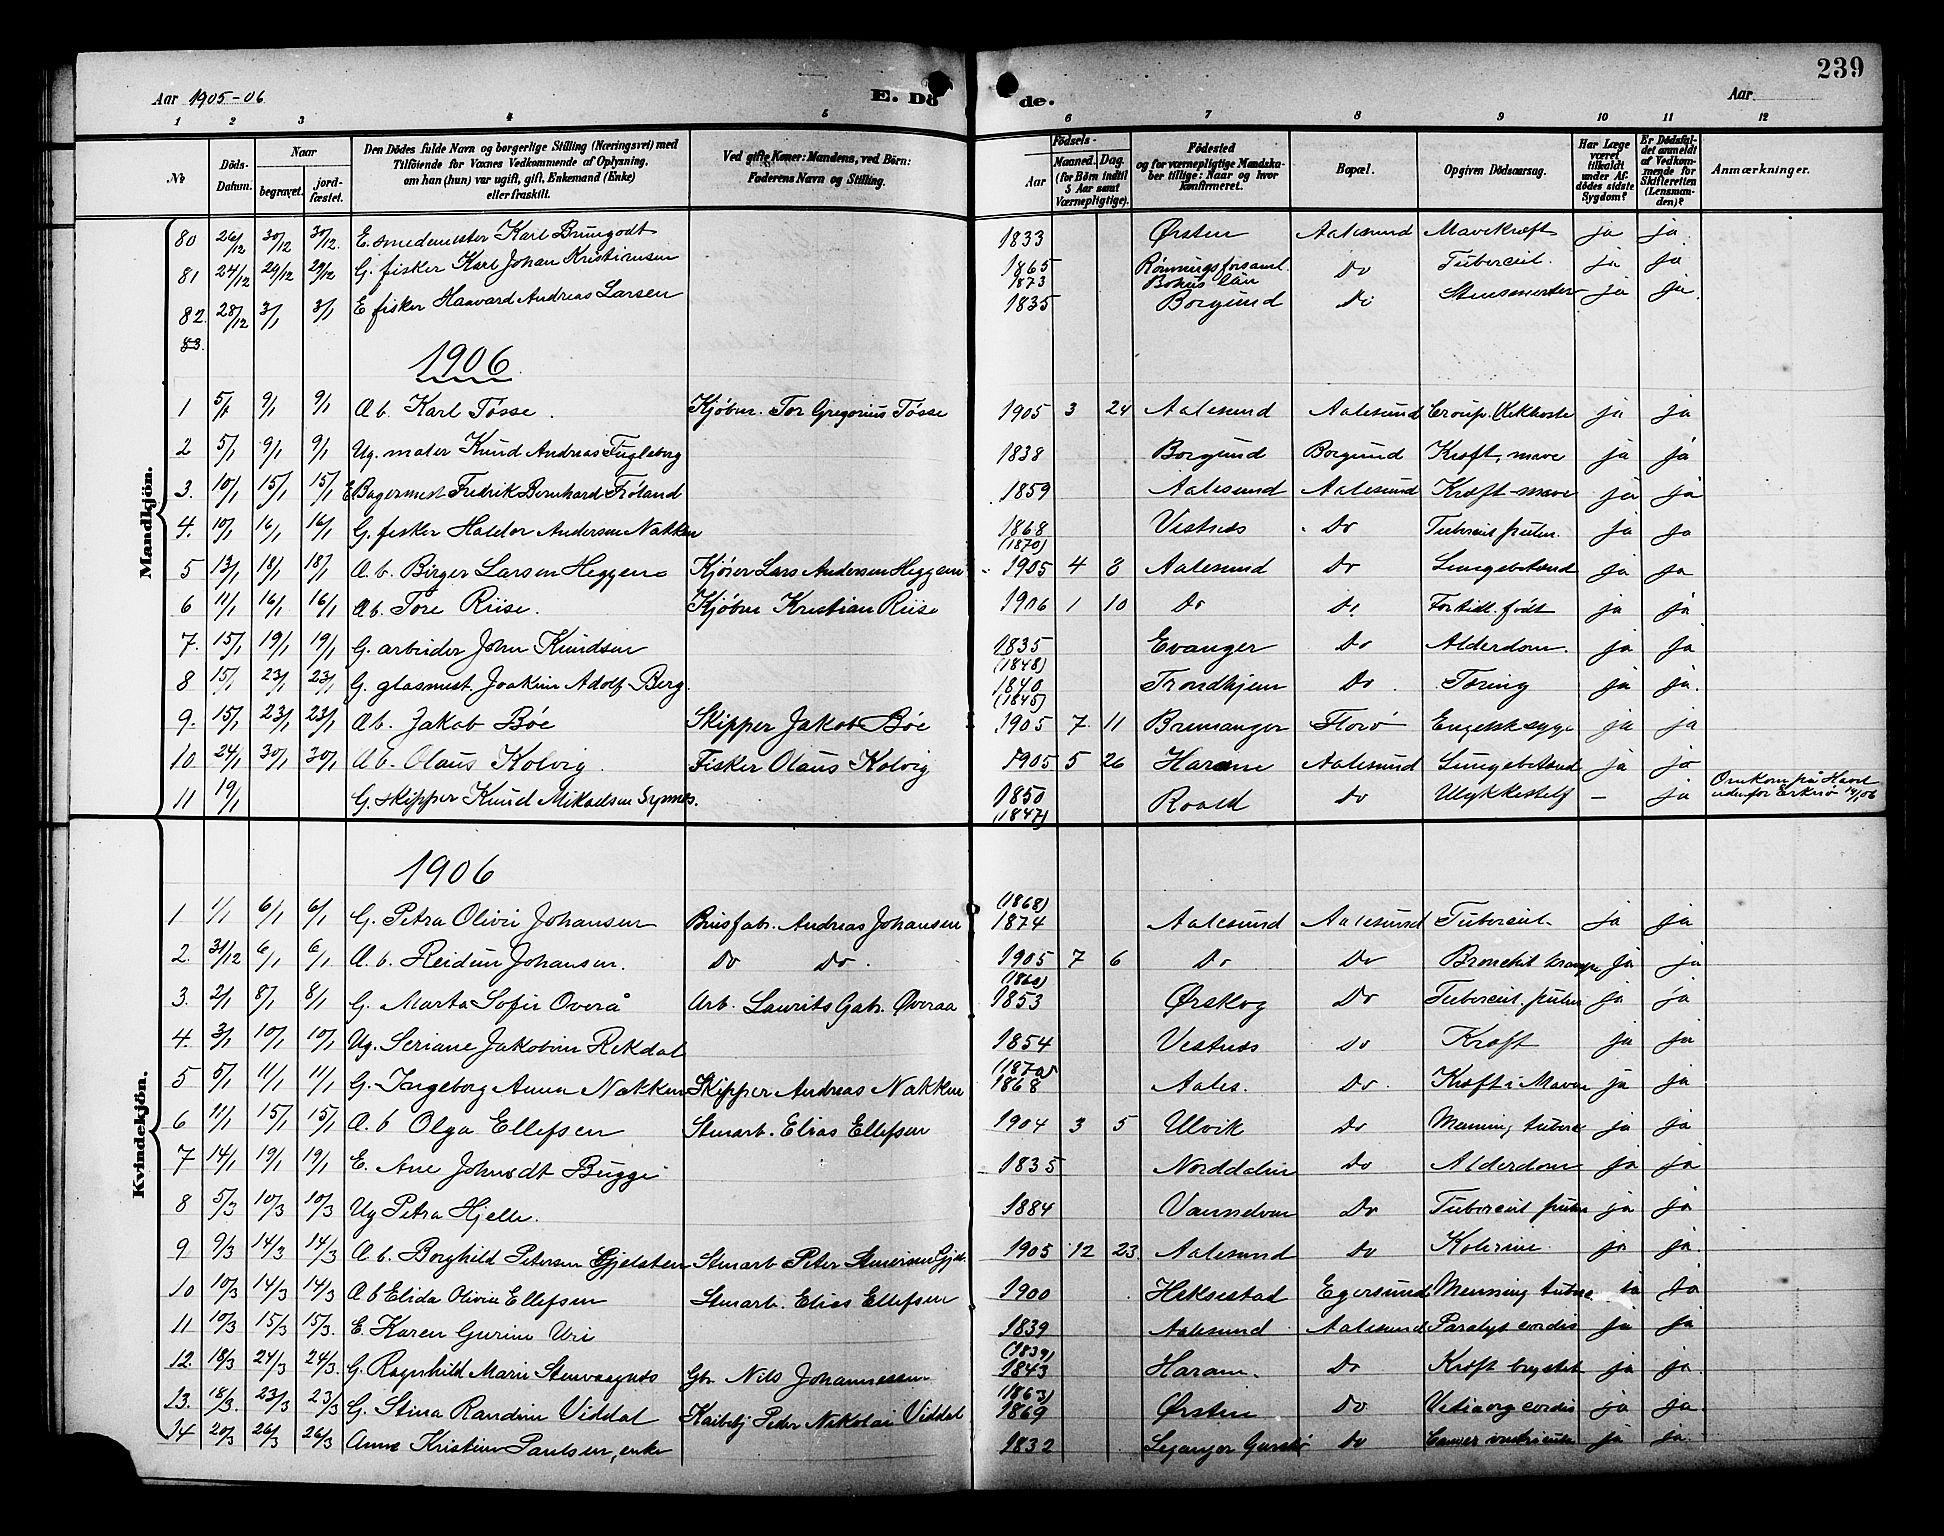 239
Aar 1905-06
E. Dö
de.
Aar
1 2 3 4 5 6 7 8 9 10 11 12
No
Döds-Datum.
Naar
begravet.
jord-fæstet.
Den Dödes fulde Navn og borgerlige Stilling (Næringsvei) med
Tilföiende for Voxnes Vedkommende af Oplysning,
om han (hun) var ugift, gift, Enkemand (Enke)
eller fraskilt.
Ved gifte Koner: Mandens, ved Börn:
Faderens Navn og Stilling.
Födsels-
Aar
Maaned. Dag.
(for Börn indtil
5 Aar samt
Værnepligtige).
Födested
og for værnepligtige Mandska-
ber tillige: Naar og hvor
konfirmeret.
Bopæl.
Opgiven Dödsaarsag.
Har Læge
været
tilkaldt
under Af-
dödes sidste
Sygdom?
Er Dödsfal-
det anmeldt
af Vedkom-
mende for
Skifteretten
(Lensman-
den)?
Anmærkninger.
Mandkjön.
80 26/12 30/12 30/12 E. smedemester Karl Brungodt 1833 Ørsten Aalesund Mavekræft ja ja
81 24/12 29/12 29/12 G. fisker Karl Johan Kristiansen 1865 1873 Rønnings forsaml. Bohus län Do Tubercul. ja ja
82. 28/12 3/1 3/1 E fisker Haavard Andreas Larsen 1835 Borgund Do ja ja
83.
1906
1 5/1 9/1 9/1 A b. Karl Tøsse. Kjøbm. Tor Gregorius Tøsse 1905 3 24 Aalesund Aalesund Croup. Kikhoste ja ja
2 5/1 9/1 9/1 Ug. maler Knud Andreas Fugleberg 1838 Borgund Borgund Kræft, mave ja ja
3. 10/1 15/1 15/1 E Bagermest Fredrik Bernhard Frøland 1859 Aalesund Aalesund Kræft mave ja ja
4. 10/1 16/1 16/1 G. fisker Haldor Andersen Nakken 1868 (1870) Vestnes Do Tubercul pulm. ja ja
5 13/1 18/1 18/1 A. b. Birger Larsen Heggem Kjører Lars Andersen Heggem 1905 4 8 Aalesund Do Lungebetænd ja ja
6 11/1 16/1 16/1 A b. Tore Riise. Kjøbm Kristian Riise 1906 1 10 Do Do For tidl. født ja ja
7. 15/1 19/1 19/1 G. arbeider John Knudsen 1835 (1848) Evanger Do Alderdom. ja ja
8 15/1 23/1 23/1 G. glasmest. Joakim Adolf Berg. 1840 (1845) Trondhjem Do. Tæring ja ja.
9. 15/1 23/1 23/1 A b. Jakob Bøe Skipper Jakob Bøe 1905 7 11 Bremanger Florø Engelsk syge ja ja
10 24/1 30/1 30/1 A b. Olaus Kolvig. Fisker Olaus Kolvig 1905 5 26 Haram Aalesund Lungebetænd ja ja
11 19/1 G. skipper Knud Mikaelsen Synnes. 1850 (1847) Roald Do Ulykkestilf – ja Omkom paa Havet udenfor Erknø 19/1 06
Kvindekjön.
1906
1 1/1 6/1 6/1 G. Petra Olivie Johansen Brusfabr. Andreas Johansen (1868) 1874 Aalesund Aalesund Tubercul. ja ja
2. 31/12 6/1 6/1 A. b. Reidun Johansen. Do Do. 1905 7 6 Do Do Bronchit krampe ja ja
3. 2/1 8/1 8/1 G. Marta Sofie Overå Arb. Laurits Gabr. Øveraa (1860) 1853 Ørskog Do Tubercul. pulm ja ja
4. 3/1 10/1 10/1 Ug. Seriane Jakobine Rekdal 1854 Vestnes Do Kræft ja ja
5 5/1 11/1 11/1 G. Ingeborg Anna Nakken Skipper Andreas Nakken (1870) 1868 Aales. Do. Kræft i Maven ja ja
6 11/1 15/1 15/1 A. b Olga Ellefsen Stenarb. Elias Ellefsen 1904 3 5 Ulvik Do Menning tuberc ja ja
7 14/1 19/1 19/1 E. Ane Johnsdt Bugge 1835 Norddalen Do Alderdom ja ja
8 5/3 10/3 10/3 Ug Petra Hjelle. 1884 Vannelven Do Tubercul pulm ja ja
9 9/3 14/3 14/3 A. b. Borghild Petersen Gjelsten Stenarb Peter 1905 12 23. Aalesund Do Kolerine ja ja.
10 10/3 14/3 14/3 A b Elida Olivie Ellefsen Stenarb. Elias Ellefsen 1900 Heksestad Egersund Menning tuberc ja ja
11 10/3 15/3 15/3. E. Karen Gurine Uri 1839 Aalesund Aalesund Paralys cordis ja ja
12. 18/3 24/3 24/3 G. Ragnhild Marie Stenvaagnes Gbr Nils Johannessen (1839) 1843 Haram. Do Kræft brystet ja ja.
13. 18/3. 23/3 23/3 G. Stina Randine Viddal Peder Nikolai Viddal (1863) 1869 Ørsten Do cordis ja ja.
14 20/3 26/3 26/3 Anne Kristine Paulsen, enke 1832 Leganger Do Cancer ventriculi ja ja.